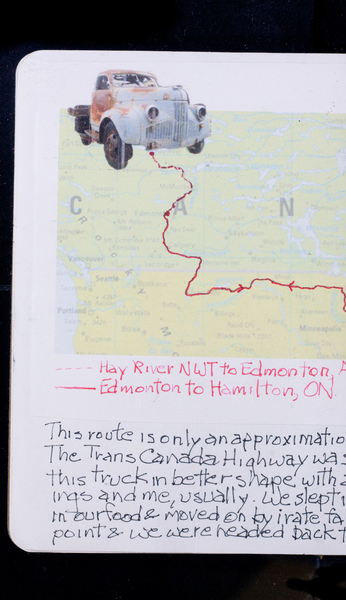 C A N
Vancouver
Seattle
Portland
Minneapolis
Hay River NWT to Edmonton, A
Edmonton to Hamilton, ON.
This route is only an approximatio
The Trans Canada Highway was
this truck in better shape, with a
ings and me, usually. We slept i
in our food & moved on by irate fa
point & we were headed back t